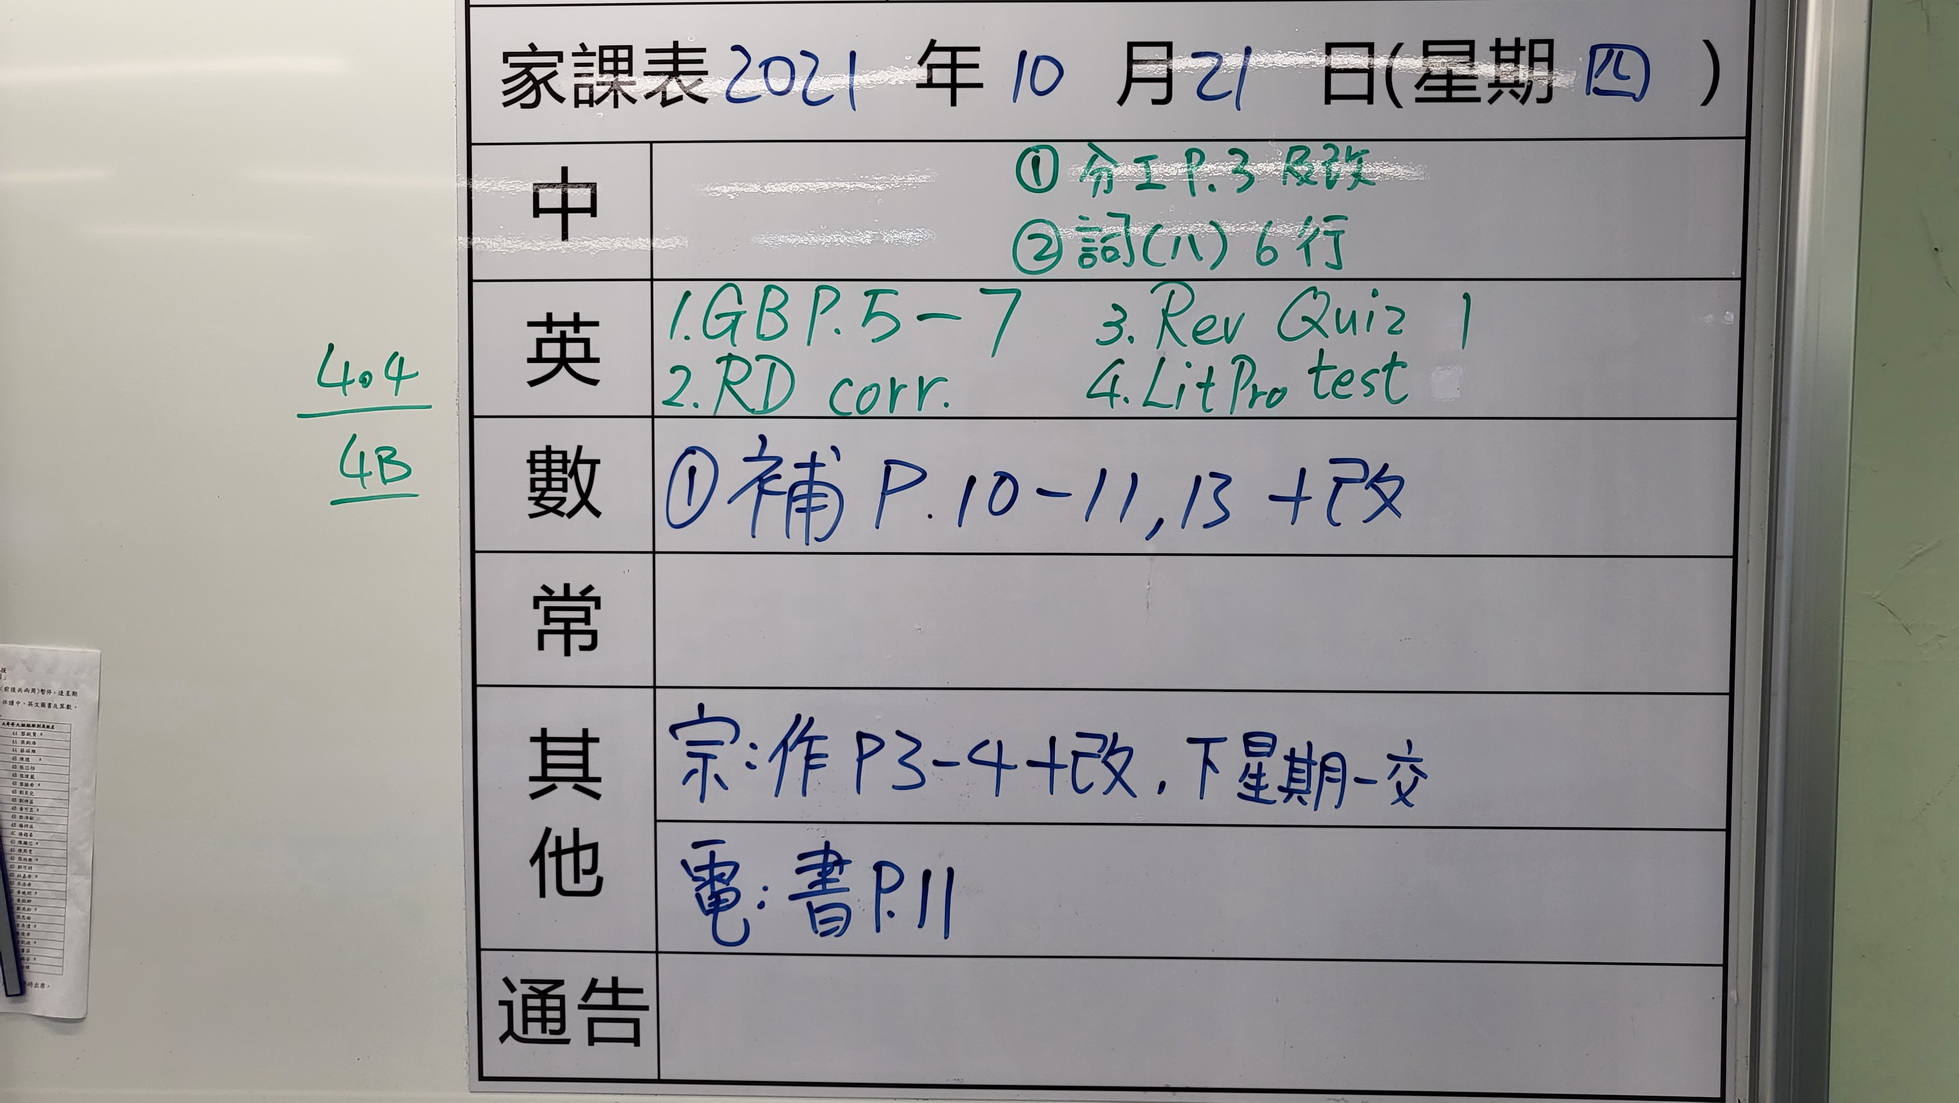 家課表 2021 年 10 月 21 日(星期 四 )
中
① 分工 P.3 及改
② 詞(八) 6 行
英
1. GB P.5-7 3. Rev Quiz 1
2. RD corr. 4. LitPro test
4.4
4B
數
① 補 P.10-11, 13 + 改
常
其他
宗:作 P3-4+改, 下星期一交
電:書 P.11
通告